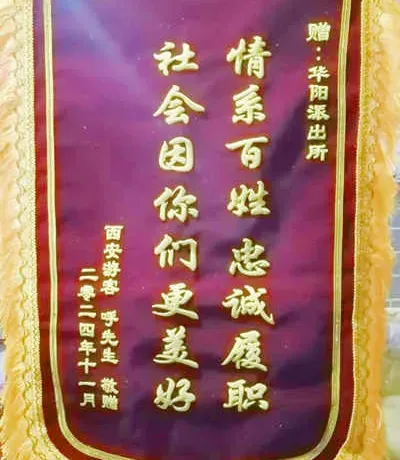 赠：华阳派出所
情系百姓忠诚履职
社会因你们更美好
西安游客 呼先生 敬赠
二零二四年十一月